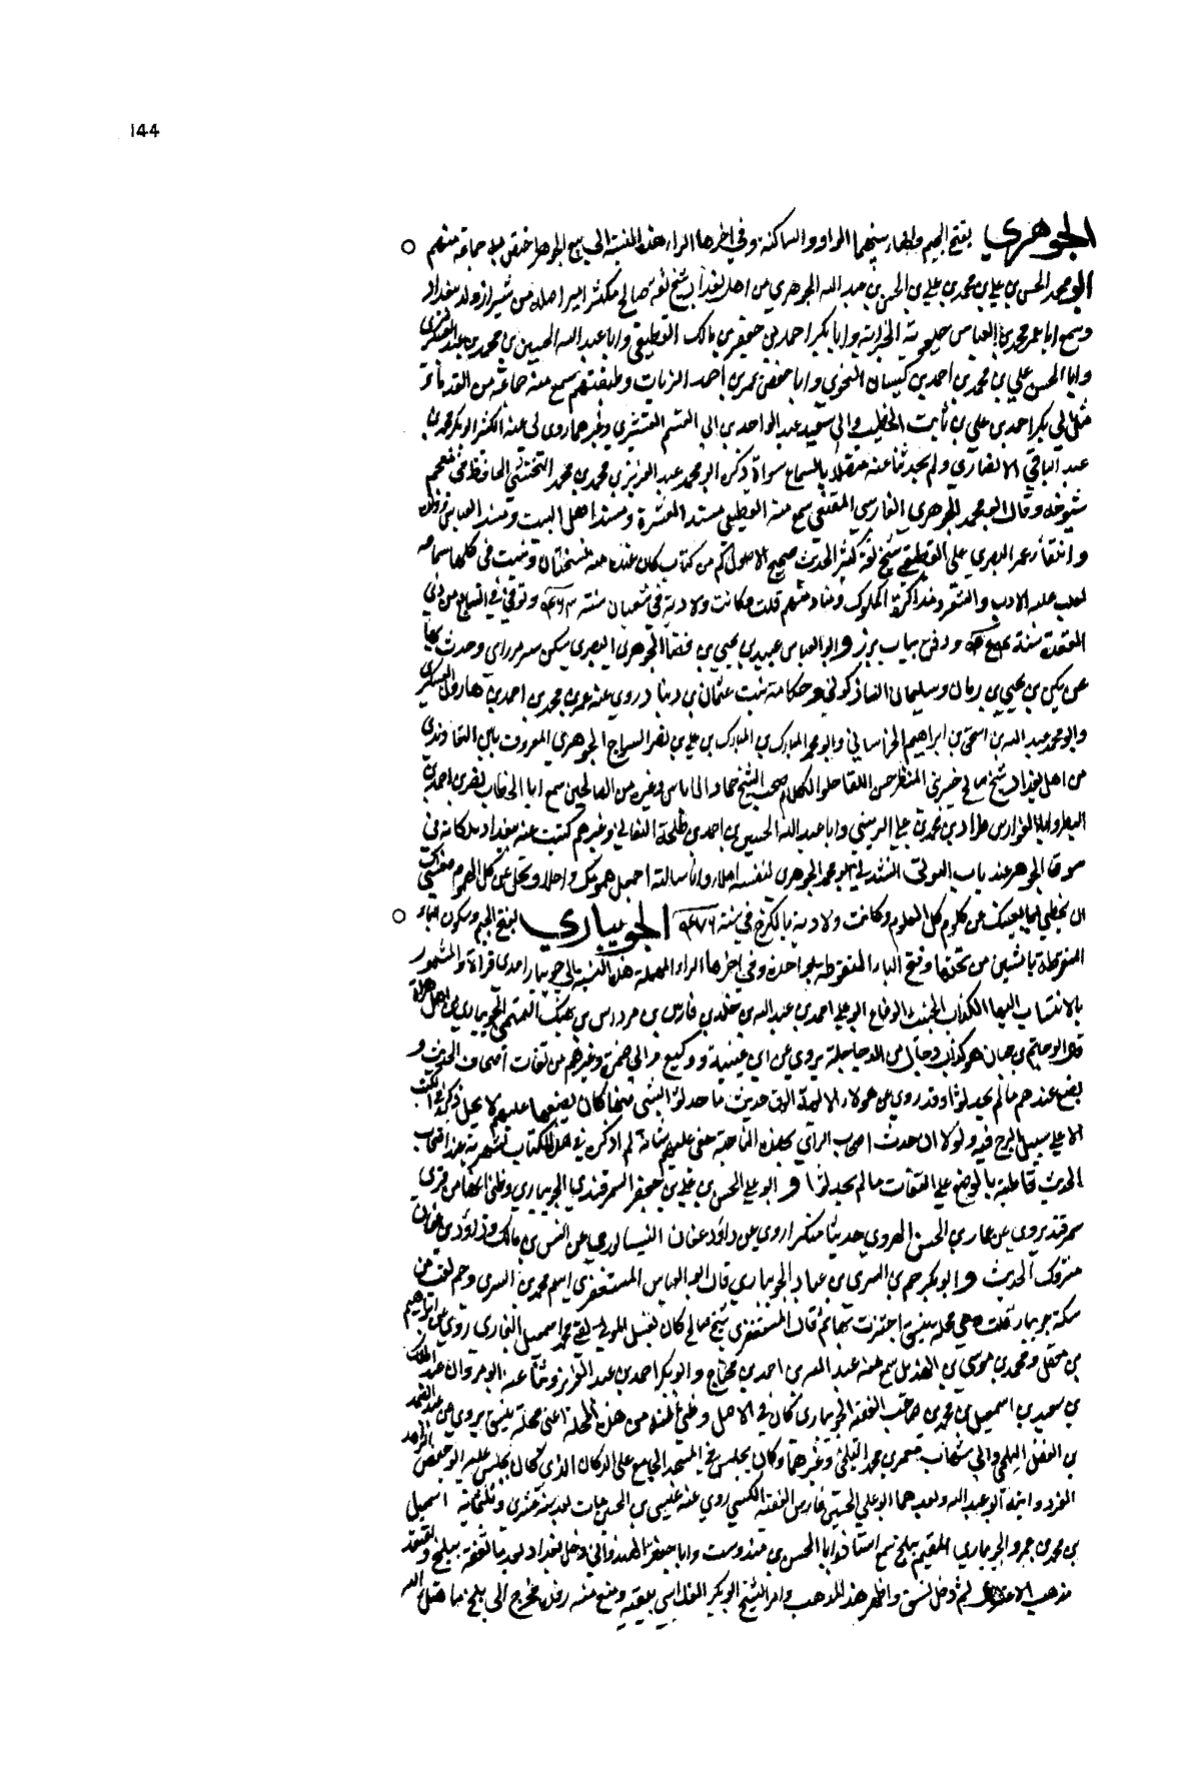 144
الجوهري بفتح الجيم والهاء بينهما الواو الساكنة وفي اخرها الراء هذه النسبة الى بيع الجوهر اختص به جماعة منهم
ابو محمد الحسن بن علي بن محمد بن علي بن الحسن بن عبد الله الجوهري من اهل بغداد شيخ ثقة صالح مكثر امير اصله من شيراز ولد ببغداد
وسمع ابا عمر محمد بن العباس حيويه الخزاز وابا بكر احمد بن جعفر بن مالك القطيعي وابا عبد الله الحسين بن محمد بن عبيد العسكري
وابا الحسن علي بن محمد بن احمد بن كيسان النحوي وابا حفص عمر بن احمد الزيات وطبقتهم سمع منه جماعة من القدماء
مثل ابي بكر احمد بن علي بن ثابت الخطيب وابي سعيد عبد الواحد بن ابي القسم القشيري وغيرهما روى لي عنه الكثير ابو بكر محمد بن
عبد الباقي الانصاري ولم يحدثنا عنه متصلا بالسماع سواه ذكره ابو محمد عبد العزيز بن محمد بن محمد النخشبي الحافظ في معجم
شيوخه وقال ابو محمد الجوهري الفارسي المقنعي سمع منه القطيعي مسند العشرة ومسند اهل البيت ومسند العباس
وانتقاء عمر البصري على القطيعي شيخ ثقة كثير الحديث صحيح الاصول كم من كتاب كان عنده منه نسختان وثبت في كلها سماعه
الادب والشعر ومذاكرة الملوك ومنادمتهم قلت وكانت ولادته في شعبان سنة وتوفي في السابع من ذي
القعدة سنة ودفن بباب برز وابو العباس عبيد بن يحيى بن الجوهري البصري سكن سر من راى وحدث بها
عن يحيى بن زبان وسليمان الشاذكوني وحكامة بنت عثمان بن دينار روى عنه عمر بن محمد بن احمد بن هارون العسكري
وابو محمد عبد الله بن اسحق بن ابراهيم الخراساني وابو محمد المبارك بن المبارك بن علي بن نصر السراج الجوهري المعروف بابن التعاويذي
من اهل بغداد شيخ صالح خير بهي المنظر حسن اللقاء حلو الكلام صحب الشيخ حماد الدباس وغيره من الصالحين سمع ابا الخطاب نصر بن احمد بن
البطر وابا الفوارس طراد بن محمد بن علي الزينبي وابا عبد الله الحسين بن احمد بن طلحة النعالي وغيرهم كتبت عنه ببغداد بدكانه في
سوق الجوهر عند باب النوبي انشدني ابو محمد الجوهري لنفسه املاء وانا سالته اجعل همومك واحدا وتخل عن كل الهموم فعساك
ان تحظى بما يغنيك عن كل العلوم وكانت ولادته بالكرخ في سنة الجويباري بضم الجيم وسكون الياء
المنقوطة باثنتين من تحتها وفتح الباء المنقوطة بواحدة وفي اخرها الراء المهملة هذه النسبة الى جويبار احدى قراة والمشهور
بالانتساب اليها الكذاب الخبيث الوضاع ابو علي احمد بن عبد الله بن خلد بن فارس بن مرداس بن نهيك التميمي الجويباري من اهل هراة
قال ابو حاتم بن حبان هو كذاب دجال من الدجاجلة يروي عن ابن عيينة ووكيع وابي ضمرة وغيرهم من ثقات اصحاب الحديث و
يضع عندهم ما لم يحدثوا وقد روى عن هولاء الايمة الوف حديث ما حدثوا بشي منها كان يضعها عليهم لا يحل ذكره في الكتب
الا على سبيل الجرح فيه ولولا ان حدث اصحاب الراي بهذه الناحية خفي عليهم شانه لم اذكره في هذا الكتاب لشهرته عند اصحاب
الحديث قاطبة بالوضع على الثقات ما لم يحدثوا وابو علي الحسن بن علي بن جعفر السمرقندي الجويباري وظني انها من قرى
سمرقند يروي عن عمار بن الحسن الهروي حديثا منكرا روى عن داود بن عفان النيسابوري عن انس بن مالك وداود بن عفان
متروك الحديث وابو بكر حم بن السري بن عباد الجويباري قال ابو العباس المستغفري اسمه محمد بن السري وحم لقب من
سكة جويبار قلت وهي محلة بنسف اجتزت بها ثم قال المستغفري شيخ صالح كان يغسل الموتى لقي محمد بن اسمعيل البخاري روى عن ابراهيم
بن معقل ومحمد بن موسى بن الهذيل سمع منه عبد الله بن احمد بن محتاج وابو بكر احمد بن عبد العزيز وثنا عنه ابو مروان عبد الملك
بن سعيد بن اسمعيل بن محمد بن صاحب الفقيه الجويباري كان في الاصل وظني انه من هذه المحلة اعني محلة بنسف يروي عن عبد الصمد
بن الفضل البلخي وابي شهاب معمر بن محمد البلخي وغيرهما وكان يجلس في المسجد الجامع على الدكان الذي كان يجلس عليه ابو حفص الزاهد
وابنه ابو عبد الله وبعدهما ابو علي الحسين بن فارس الفقيه الكسي روى عنه عيسى بن الحسين مات بعد سنة عشرين وثلثمائة اسمعيل
بن محمد بن عمرو الجويباري المقيم ببلخ سمع استاذه ابا الحسن بن مندوست وابا جعفر الهندواني دخل بغداد تفقه ببلخ واعتقد
مذهب الاعتزال ثم دخل نسف واظهر هذا المذهب وامر الشيخ ابو بكر ومنع منه خرج الى بلخ